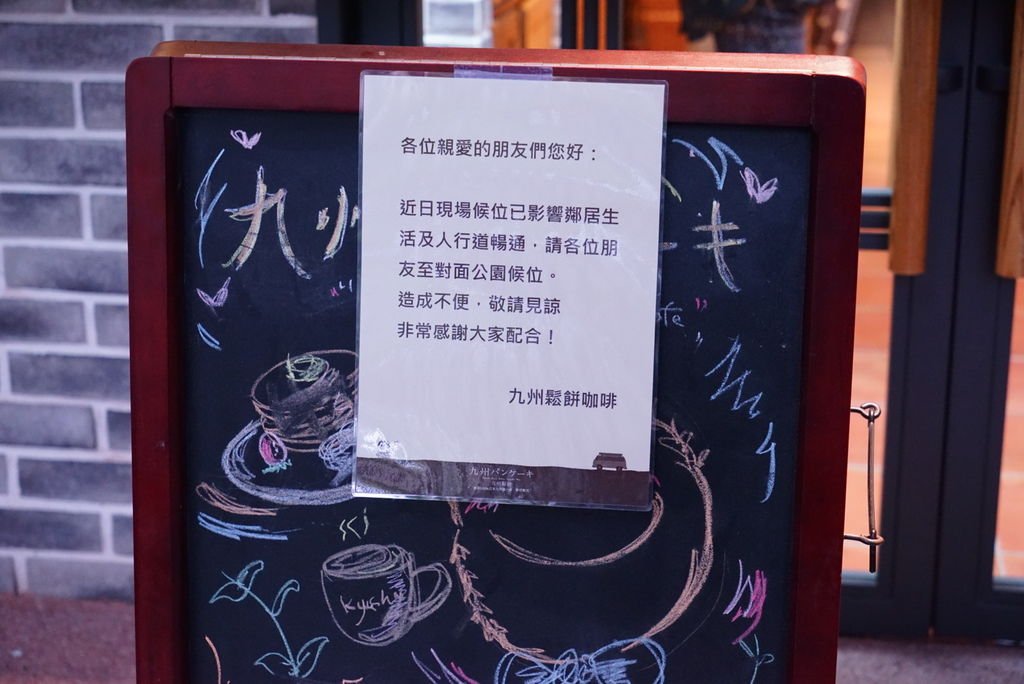 各位親愛的朋友們您好：
近日現場候位已影響鄰居生
活及人行道暢通，請各位朋
友至對面公園候位。
造成不便，敬請見諒
非常感謝大家配合！
九州鬆餅咖啡
九州パンケーキ
九州
キ